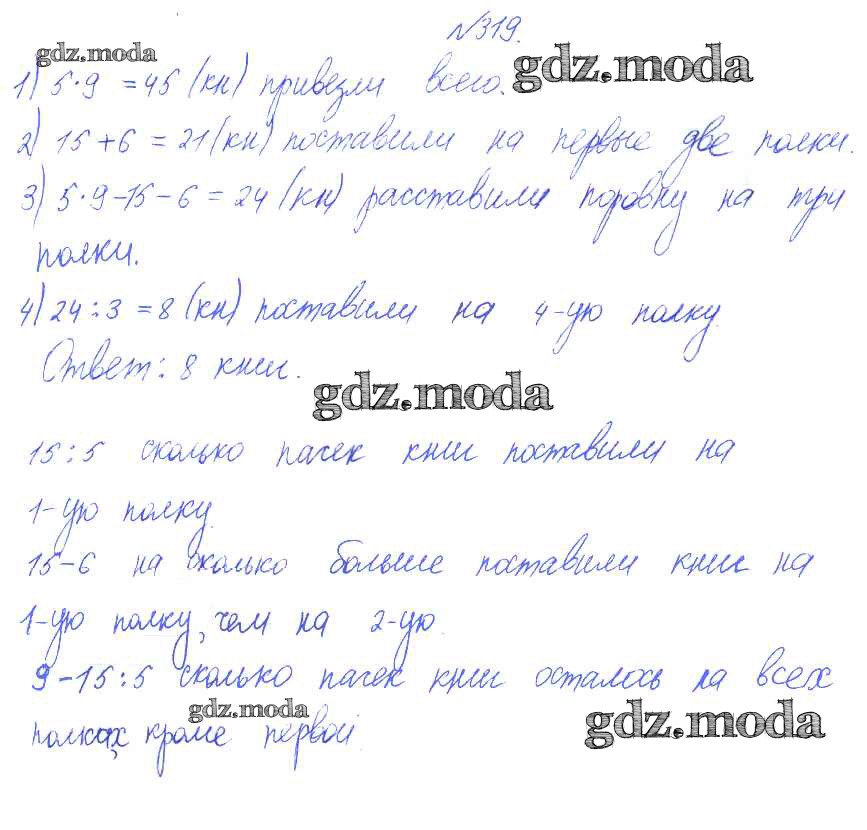 №319.
gdz.moda
gdz.moda
1) 5·9 = 45 (кн) привезли всего.
2) 15+6 = 21 (кн) поставили на первые две полки.
3) 5·9-15-6 = 24 (кн) расставили поровну на три
полки.
4) 24:3 = 8 (кн) поставили на 4-ую полку.
Ответ: 8 книг.
gdz.moda
15:5 сколько пачек книг поставили на
1-ую полку.
15-6 на сколько больше поставили книг на
1-ую полку, чем на 2-ую.
9-15:5 сколько пачек книг осталось на всех
gdz.moda
полках кроме первой
gdz.moda